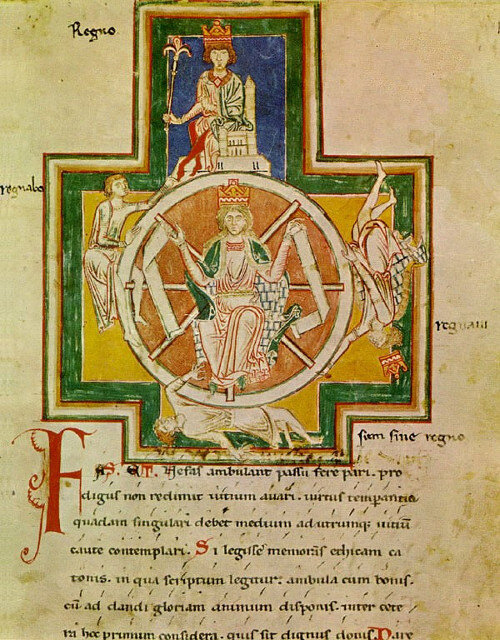 Regno
regnabo
regnaui
sum sine regno
FAS. ET. Nefas ambulant passu fere pari. pro
digus non redimit uitium auari. uirtus temperantia
quadam singulari debet medium ad utrumque uitiū
caute contemplari. Si legisse memoras ethicam ca
tonis. in qua scriptum legitur. ambula cum bonis.
cū ad dandi gloriam animum disponis. inter cete
ra hoc primum considera. quis sit dignus donis. Dare